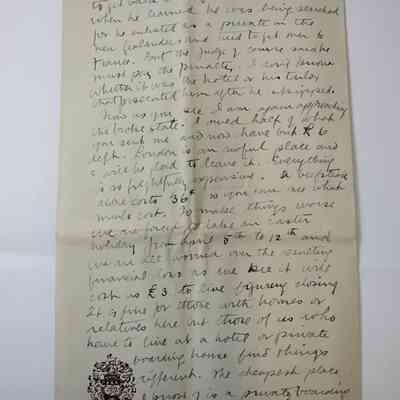 to get back
when he learned he was being searched
for he enlisted as a private in the
new Zealanders and tried to get over to
France. But the Judge of course said he
must pay the penalty. I don't know
whether it was the hotel or his tailor
that prosecuted him after he skipped.
Now as you see I am again approaching
the broke state. I owed half of what
you sent me and now have but £6
left. London is an awful place and
I will be glad to leave it. Everything
is so frightfully expensive. A beefsteak
alone costs 36¢ so you can see what
meals cost. To make things worse
we are forced to take an easter
holiday from April 5th to 12th and
we are all worried over the
financial loss as we see it will
cost us £3 to live figuring closing
It is fine for those with homes or
relatives here but those of us who
have to live at a hotel or private
boarding house find things
different. The cheapest place
I know of is a private boarding